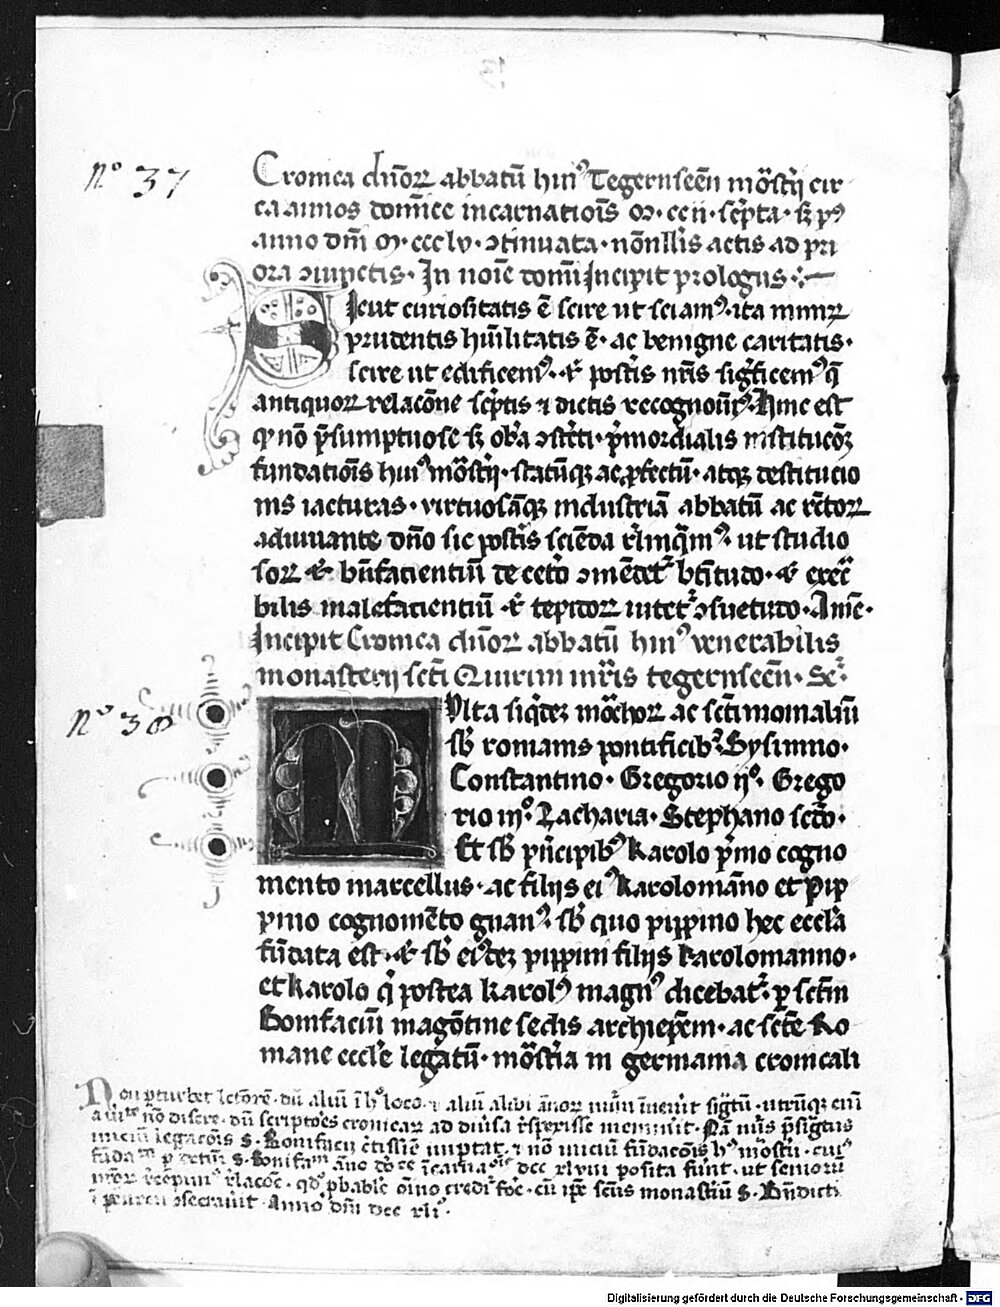 13
Nº 37
Cronica diu͂oꝝ abbatū huiꝰ Tegernseēn mōstꝭij cir
ca annos domīce incarnatiōis Mͦ. ccii. scͥpta. sꝫ pꝰ
anno dm̄ Mͦ. cccc lv. ꝯtinuata. nōnllīs actis ad pri
ora ꝯiunctis. In noīe domī Incipit prologus
Sicut curiositatis ē scire ut sciamꝰ. ita nimiꝝ
prudentis hūilitatis ē. ac benigne caritatis.
scire ut edificemꝰ. Et postīs nrīs sigͥficemꝰ q̄
antiquoꝝ relacōne scͥptis ⁊ dictis recognouimꝰ. Hinc est
qͩ nō p̄sumptuose sꝫ ob̄a . pͥmordialis institucōꝫ
fundatiōis huiꝰ mōstꝭij. statūqꝫ ac ꝓfectū. atqꝫ destitucio
nis iacturas. virtuosāqꝫ industriā abbatū ac rc̄toꝝ
adiuuante dn̄o sic postīs sciēda rl̄inqͥmꝰ. ut studio
soꝝ Et bn̄facientiū de cetō ꝯmēdetᷣ bt̄itudo. Et execͬ
bilis malefacientiū Et tepidoꝝ uitetᷣ ꝯsuetudo. Amē.
Incipit Cronica diu͂oꝝ abbatū huiꝰ venerabilis
monasterij scti Quirini mr̄is tegernseēn.
Nº 38
Multa siqͥdeꝫ mōchoꝝ ac sctīmonialiū
sb̄ romanis pontificibꝰ Sysinno.
Constantino. Gregorio ijº. Grego
rio iijº. Zacharia. Stephano scdo.
Et sb̄ pͥncipibꝰ Karolo pͥmo cogno
mento marcellus. ac filijs eiꝰ Karolomāno et Pip
pino cognomēto . sb̄ quo pippino hec ecclīa
fūdata est. Et sb̄ eiꝰdeꝫ pippini filijs Karolomanno.
et Karolo qͥ postea Karolꝰ magnꝰ dicebatᷣ. ꝑ sctm̄
Bonifaciū magōtine sedis archiep̄m. ac scte Ro
mane eccle legatū. mōstꝭia in germania cronicali
Non ꝑturbet lectorē. dū aliū ī hͦ loco. ⁊ aliū alibi ānoꝝ nūm īuenit sigtū. utrūqꝫ enī
nō . dū scriptōes cronicaꝝ ad diuͥsa rͤspexisse meminit. Nā nūs pͥsignatus
iniciū legacōis S. Bonifacij imputat. ⁊ nō iniciū fūdacōis hͧ mōstꝭij. cuiꝰ
fūdaͫ ꝑ S. Bonifaͫ āno dcc xlviij posita sunt. ut senioꝝ
nroꝝ relacōe. qͩ ꝓbabile oīno credi . cū ipͤ scūs monastiū S. Bn̄dicti
ī ꝯsecrauit. Anno dm̄ dcc xliͦ.
Digitalisierung gefördert durch die Deutsche Forschungsgemeinschaft - DFG